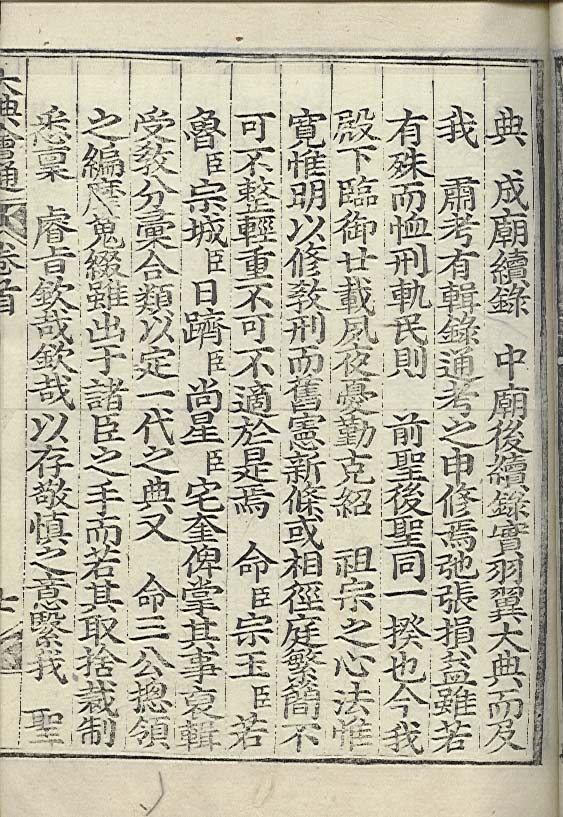 典　成廟續錄　中廟後續錄實羽翼大典而及
我　肅考有輯錄通考之申修焉弛張損益雖若
有殊而恤刑軌民則　前聖後聖同一揆也今我
殿下臨御廿載夙夜憂勤克紹　祖宗之心法惟
寬惟明以修敎刑而舊憲新條或相徑庭繁簡不
可不整輕重不可不適於是焉　命臣宗玉臣若
魯臣宗城臣日躋臣尚星臣宅奎俾掌其事裒輯
受敎分彙合類以定一代之典又　命三公摠領
之編摩蒐綴雖出于諸臣之手而若其取捨裁制
悉稟　睿旨欽哉欽哉以存敬慎之意繄我　聖
大典會通　卷首